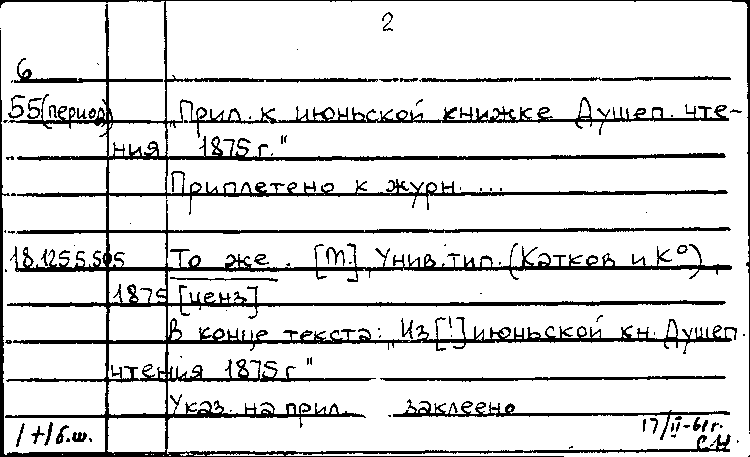 2
6
55(период) "Прил. к июньской книжке Душеп. чте-
ния 1875 г."
Приплетено к журн. ...
18.125.5.505 То же. [М.], Унив. тип. (Катков и К°),
1875 [ценз]
В конце текста: "Из [!] июньской кн. Душеп.
чтения 1875 г"
Указ. на прил. заклеено
1+1б.ш. 17/II-61г.
СН